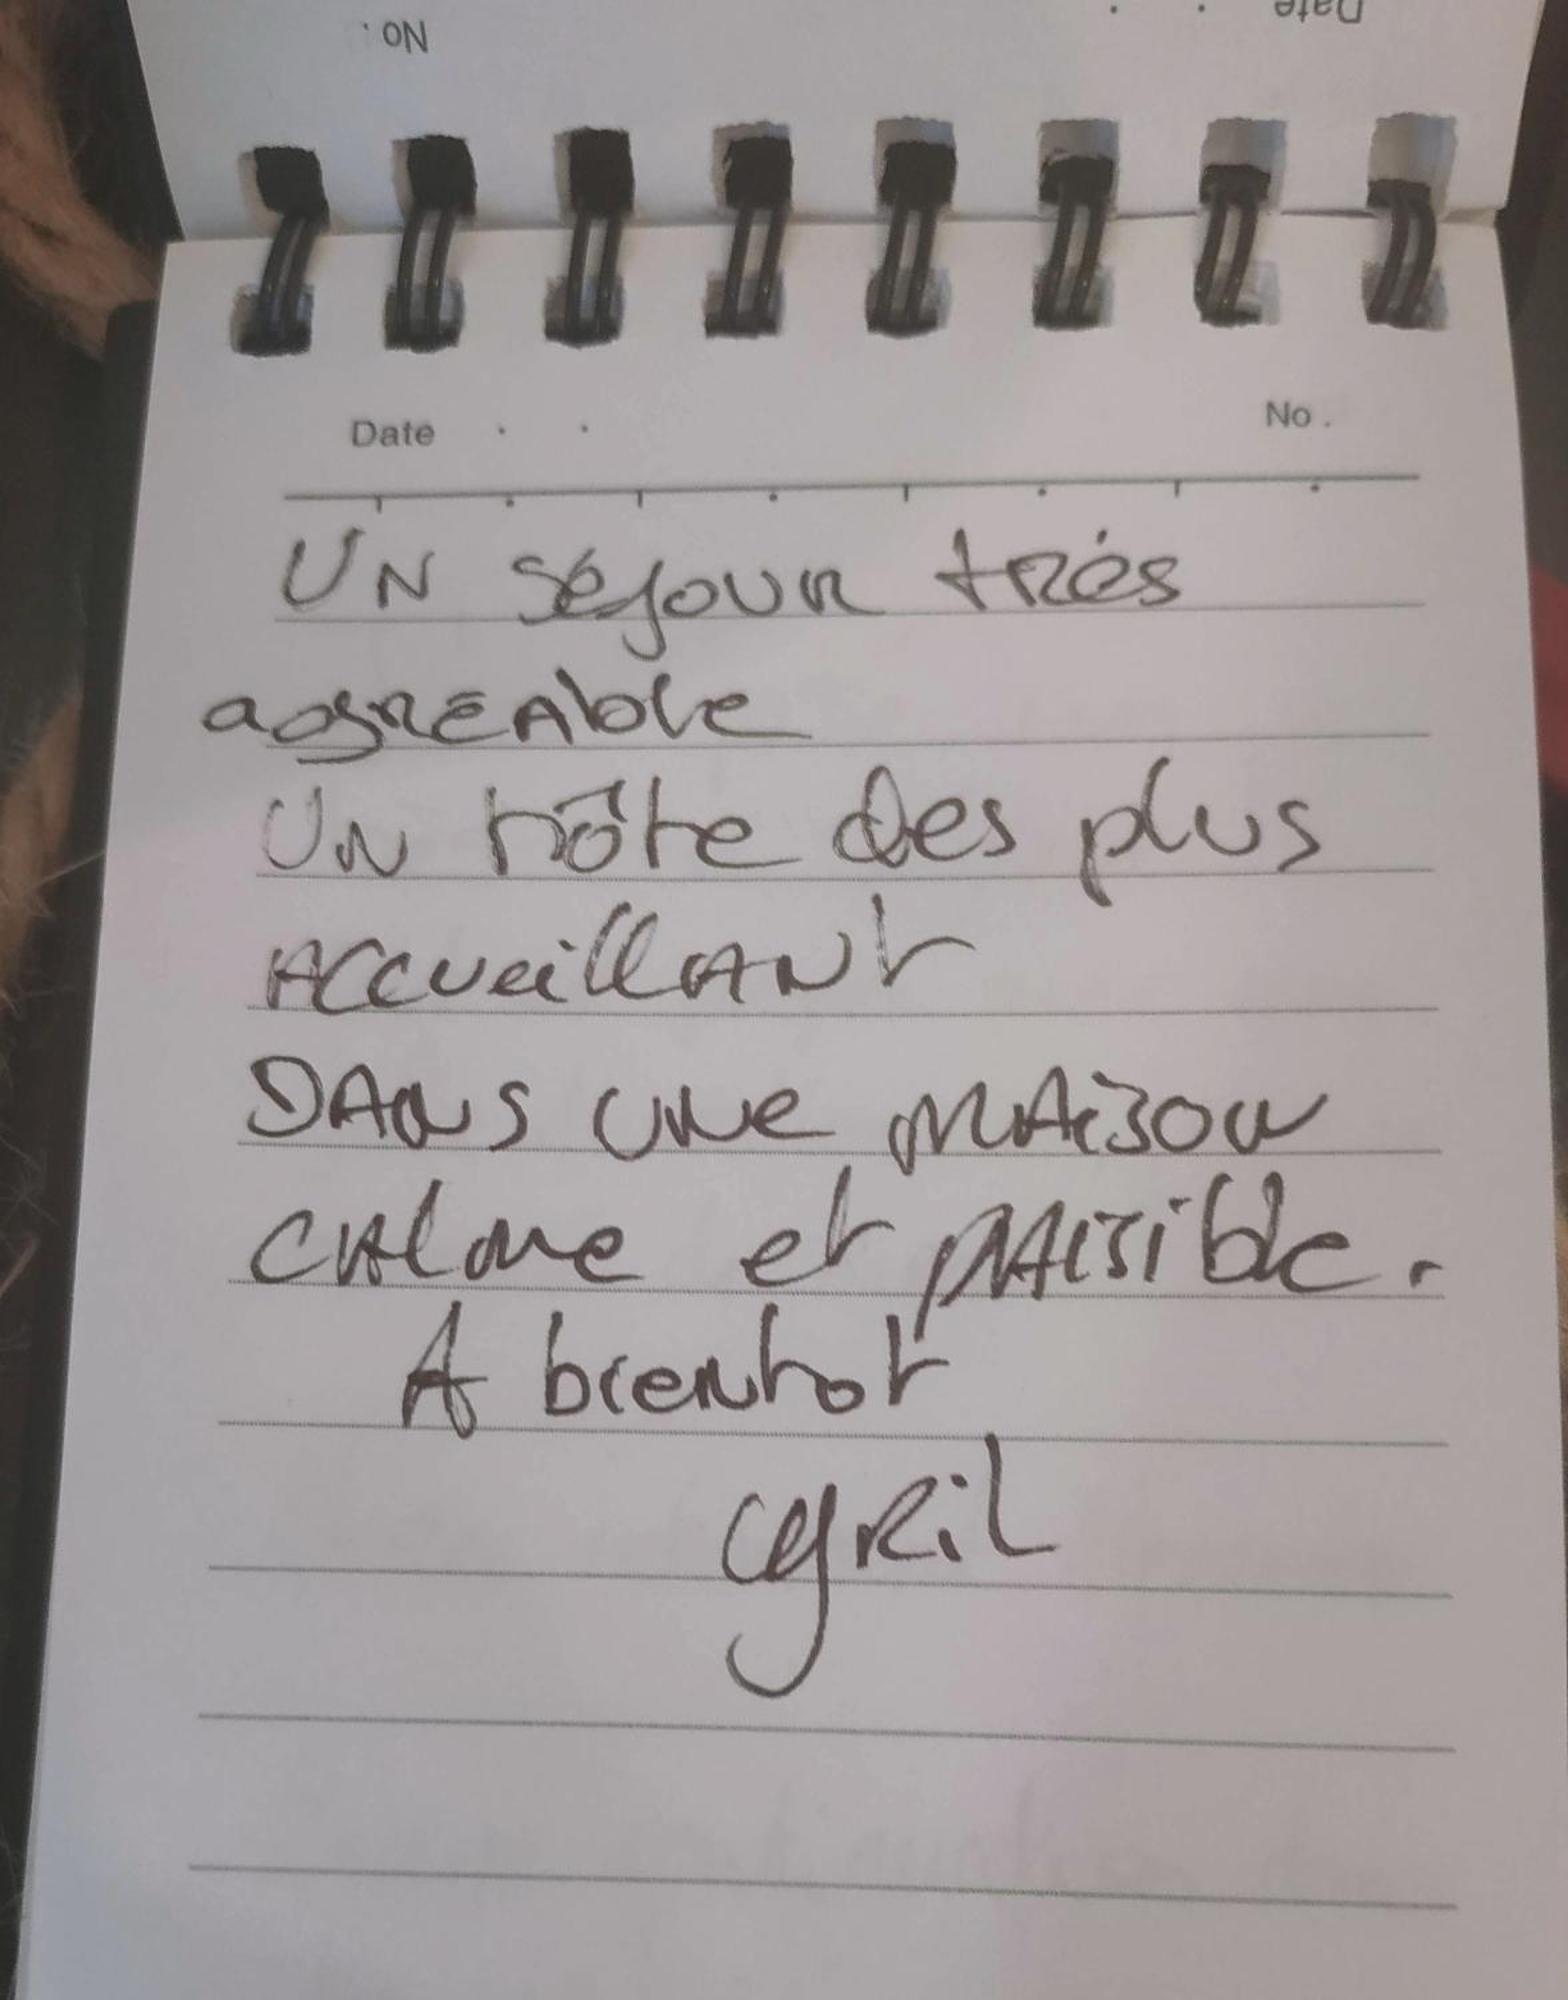 No.
Date . .
Date . . No.
UN séjour très
agréable
UN hôte des plus
Accueillant
DANS une maison
calme et paisible.
A bientot
cyril